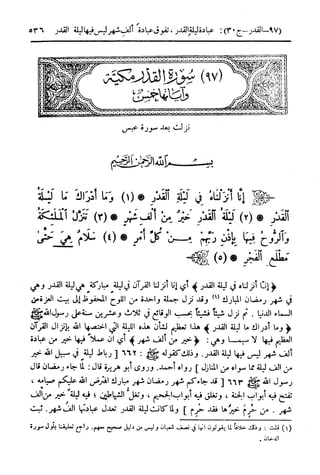 (٩٧ – القدر – ج ٣٠) : عبادة ليلة القدر، تفوق عبادة ألف شهر ليس فيها ليلة القدر ٥٣٦
(٩٧) سورة القدر مكية
وآياتها خمس
نزلت بعد سورة عبس
بسم الله الرحمن الرحيم
إنا أنزلناه في ليلة القدر (١) وما أدراك ما ليلة
القدر (٢) ليلة القدر خير من ألف شهر (٣) تنزل الملئكة
والروح فيها بإذن ربهم من كل أمر (٤) سلام هي حتى
مطلع الفجر (٥)
﴿ إنا أنزلناه في ليلة القدر ﴾ أي إنا أنزلنا القرآن في ليلة مباركة هي ليلة القدر وهي
في شهر رمضان المبارك (١) وقد نزل جملة واحدة من اللوح المحفوظ إلى بيت العزة من
السماء الدنيا . ثم نزل شيئاً فشيئاً بحسب الوقائع في ثلاث وعشرين سنة على رسول الله ﷺ
﴿ وما أدراك ما ليلة القدر ﴾ هذا تعظيم لشأن هذه الليلة التي اختصها الله بإنزال القرآن
العظيم فيها لا سيما وهي : ﴿ خير من ألف شهر ﴾ أي أن عملاً فيها خير من عبادة
ألف شهر ليس فيها ليلة القدر . وذلك كقوله ﷺ : ٦٦٢ [ رباط ليلة في سبيل الله خير
من ألف ليلة مما سواه من المنازل ] رواه أحمد . وروى أبو هريرة قال : لما جاء رمضان قال
رسول الله ﷺ ٦٦٣ [ قد جاءكم شهر رمضان شهر مبارك افترض الله عليكم صيامه ،
تفتح فيه أبواب الجنة ، وتغلق فيه أبواب الجحيم ، وتغل الشياطين ؛ فيه ليلة خير من ألف
شهر . من حرم خيرها فقد حرم ] ولما كانت ليلة القدر تعدل عبادتها ألف شهر . ثبت
(١) قلت : وذلك خلافاً لما يقولون أنها في نصف شعبان وليس من دليل صحيح معهم. راجع تعليقنا بأول سورة
الدخان .